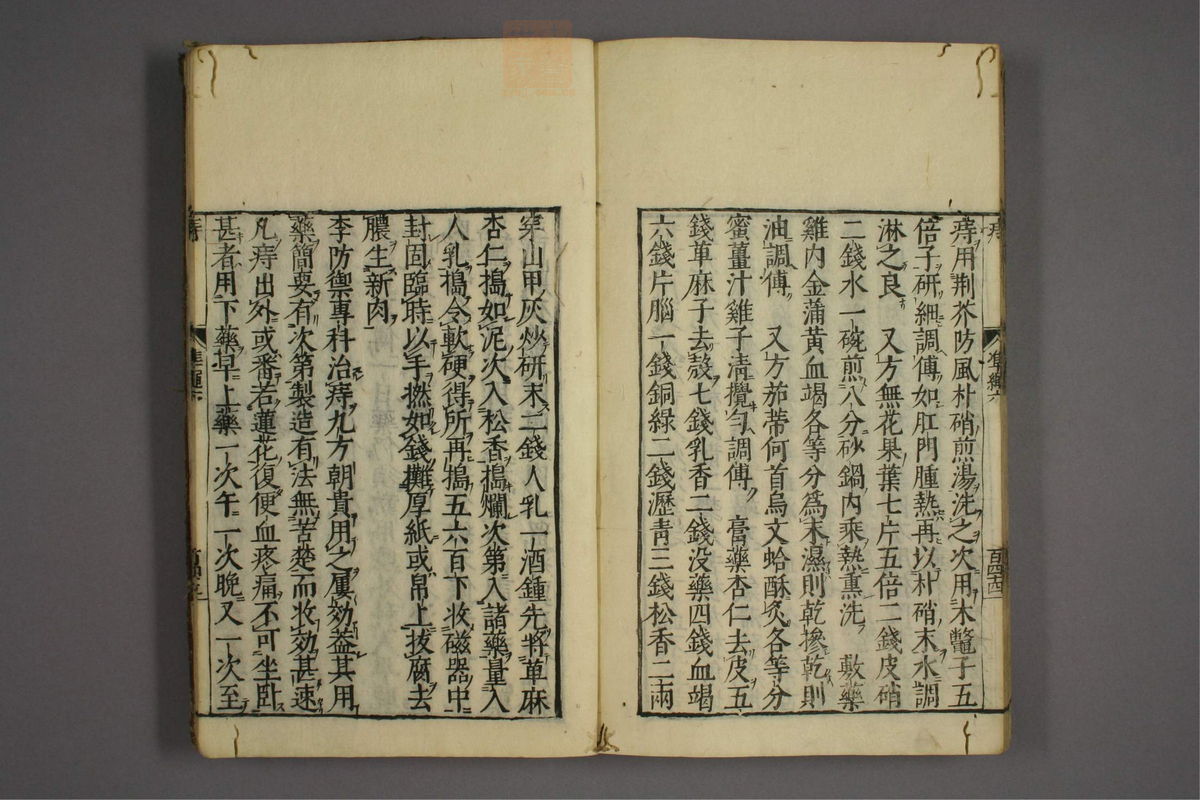 痔用荆芥防風朴硝煎湯洗之次用木鼈子五
倍子研細調傅如肛門腫熱再以朴硝末水調
淋之良　又方無花果葉七片五倍二錢皮硝
二錢水一碗煎八分砂鍋内乘熱熏洗　敷藥
雞内金蒲黄血竭各等分爲末濕則乾摻乾則
油調傅　又方茄蒂何首烏文蛤酥灸各等分
蜜薑汁雞子清攪匀調傅　膏藥杏仁去皮五
錢草麻子去殼七錢乳香二錢没藥四錢血竭
六錢片腦一錢銅緑二錢瀝靑三錢松香二兩
穿山甲灰炒研末二錢人乳一酒鍾先將草麻
杏仁搗如泥次入松香搗爛次第入諸藥量入
人乳搗令軟硬得所再搗五六百下收磁器中
封固臨時以手撚如錢攤厚紙或帛上拔腐去
膿生新肉
李防禦專科治痔九方朝貴用之屢効葢其用
藥簡要有次第製造有法無苦楚而收効甚速
凡痔出外或番若蓮花復便血疼痛不可坐卧
甚者用下藥早上藥一次午一次晚又一次至